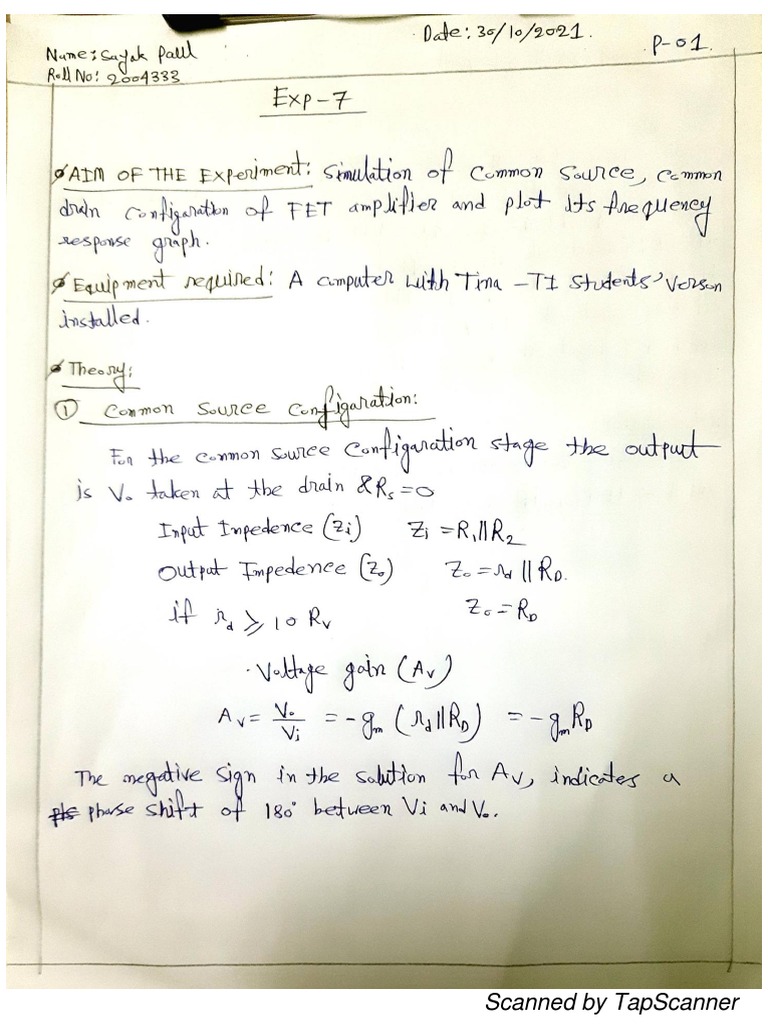 Date: 30/10/2021.
P-01
Name: Sayak Paul
Roll No: 2004333
Exp-7
AIM OF THE Experiment: Simulation of Common Source, Common
drain Configaration of FET amplifier and plot its frequency
response graph.
Equipment required: A Computer with Tina -TI Students' Verson
installed.
Theory:
① Common Source Configaration:
For the common source Configaration stage the output
is Vo taken at the drain & Rs=0
Input Impedence (Zi) Zi = R1||R2
Output Impedence (Zo) Zo = rd || RD.
if rd ≥ 10 RV Zo = RD
Voltage gain (Av)
Av = Vo/Vi = -gm (rd||RD) = -gm RD
The negative sign in the solution for Av, indicates a
phase shift of 180° between Vi and Vo.
Scanned by TapScanner